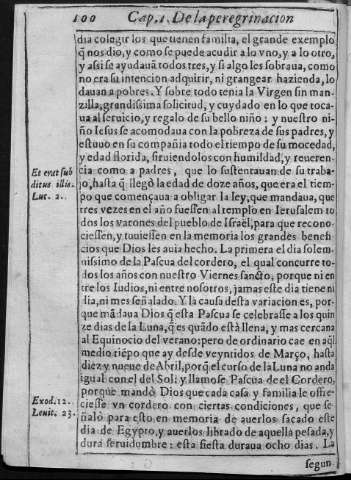 100 Cap. 1. De la peregrinacion
dia colegir los que tienen familia, el grande exemplo
q̃ nos dio, y como se puede acudir a lo vno, y a lo otro,
y assi se ayudauã todos tres, y si algo les sobraua, como
no era su intencion adquirir, ni grangear hazienda, lo
dauan a pobres. Y sobre todo tenia la Virgen sin man-
zilla, grandissima solicitud, y cuydado en lo que toca-
ua al seruicio, y regalo de su bello niño: y nuestro ni-
ño Iesus se acomodaua con la pobreza de sus padres, y
estuuo en su compañia todo el tiempo de su mocedad,
y edad florida, siruiendolos con humildad, y reueren-
cia como a padres, que lo sustentauan de su traba-
jo, hasta q̃ llegò la edad de doze años, que era el tiem-
po que començaua a obligar la ley, que mandaua, que
tres vezes en el año fuessen al templo en Ierusalem to-
dos los varones del pueblo de Israel, para que recono-
ciessen, y tuuiessen en la memoria los grandes benefi-
cios que Dios les auia hecho. La primera el dia solem-
nissimo de la Pascua del cordero, el qual concurre to-
dos los años con nuestro Viernes sancto; porque ni en
tre los Iudios, ni entre nosotros, jamas este dia tiene ni
dia, ni mes señalado. Y la causa desta variacion es, por-
que mãdaua Dios q̃ esta Pascua se celebrasse a los quin
ze dias de la Luna, q̃ es quãdo està llena, y mas cercana
al Equinocio del verano: pero de ordinario cae en aq̃l
medio tiẽpo que ay desde veyntidos de Março, hasta
diez y nueue de Abril, porq̃ el curso de la Luna no anda
igual con el del Sol: y llamose Pascua de el Cordero,
porque mandò Dios que cada casa y familia le offre-
ciesse vn cordero con ciertas condiciones, que se-
ñalò para esto en memoria de auerlos sacado este
dia de Egypto, y auerlos librado de aquella pesada, y
dura seruidumbre: esta fiesta duraua ocho dias. La
segun
Et erat sub
ditus illis.
Luc. 2.
Exod. 12.
Leuit. 23.